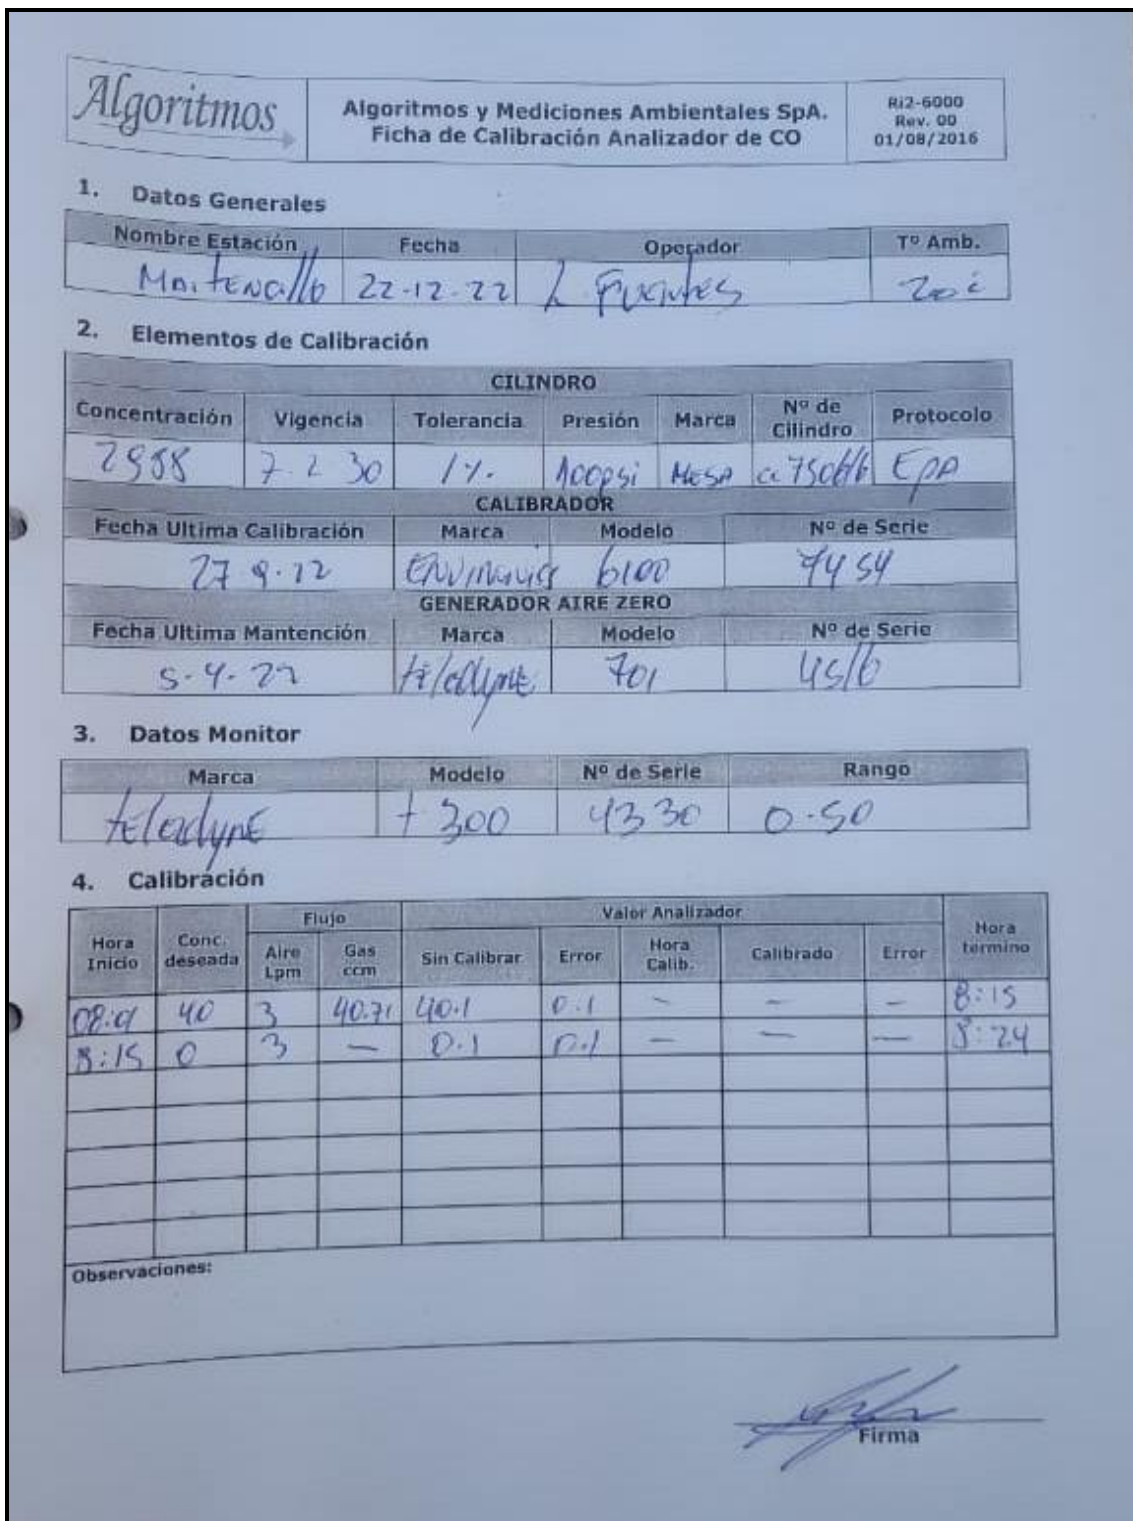 Algoritmos
Algoritmos y Mediciones Ambientales SpA.
Ficha de Calibración Analizador de CO
Ri2-6000
Rev. 00
01/08/2016
1. Datos Generales
Nombre Estación Fecha Operador Tº Amb.
22-12-22 L. Fuentes
2. Elementos de Calibración
CILINDRO
Concentración Vigencia Tolerancia Presión Marca Nº de Cilindro Protocolo
7.2 30 1%. MESA EPA
CALIBRADOR
Fecha Ultima Calibración Marca Modelo Nº de Serie
6100 7454
GENERADOR AIRE ZERO
Fecha Ultima Mantención Marca Modelo Nº de Serie
teledyne 701
3. Datos Monitor
Marca Modelo Nº de Serie Rango
teledyne t 300 4330 0-50
4. Calibración
Flujo Valor Analizador
Hora Inicio Conc. deseada Aire Lpm Gas ccm Sin Calibrar Error Hora Calib. Calibrado Error Hora termino
40 3 40.71 40.1 0.1 - - - 8:15
8:15 0 3 - 0.1 0.1 - - - 8:24
Observaciones:
Firma